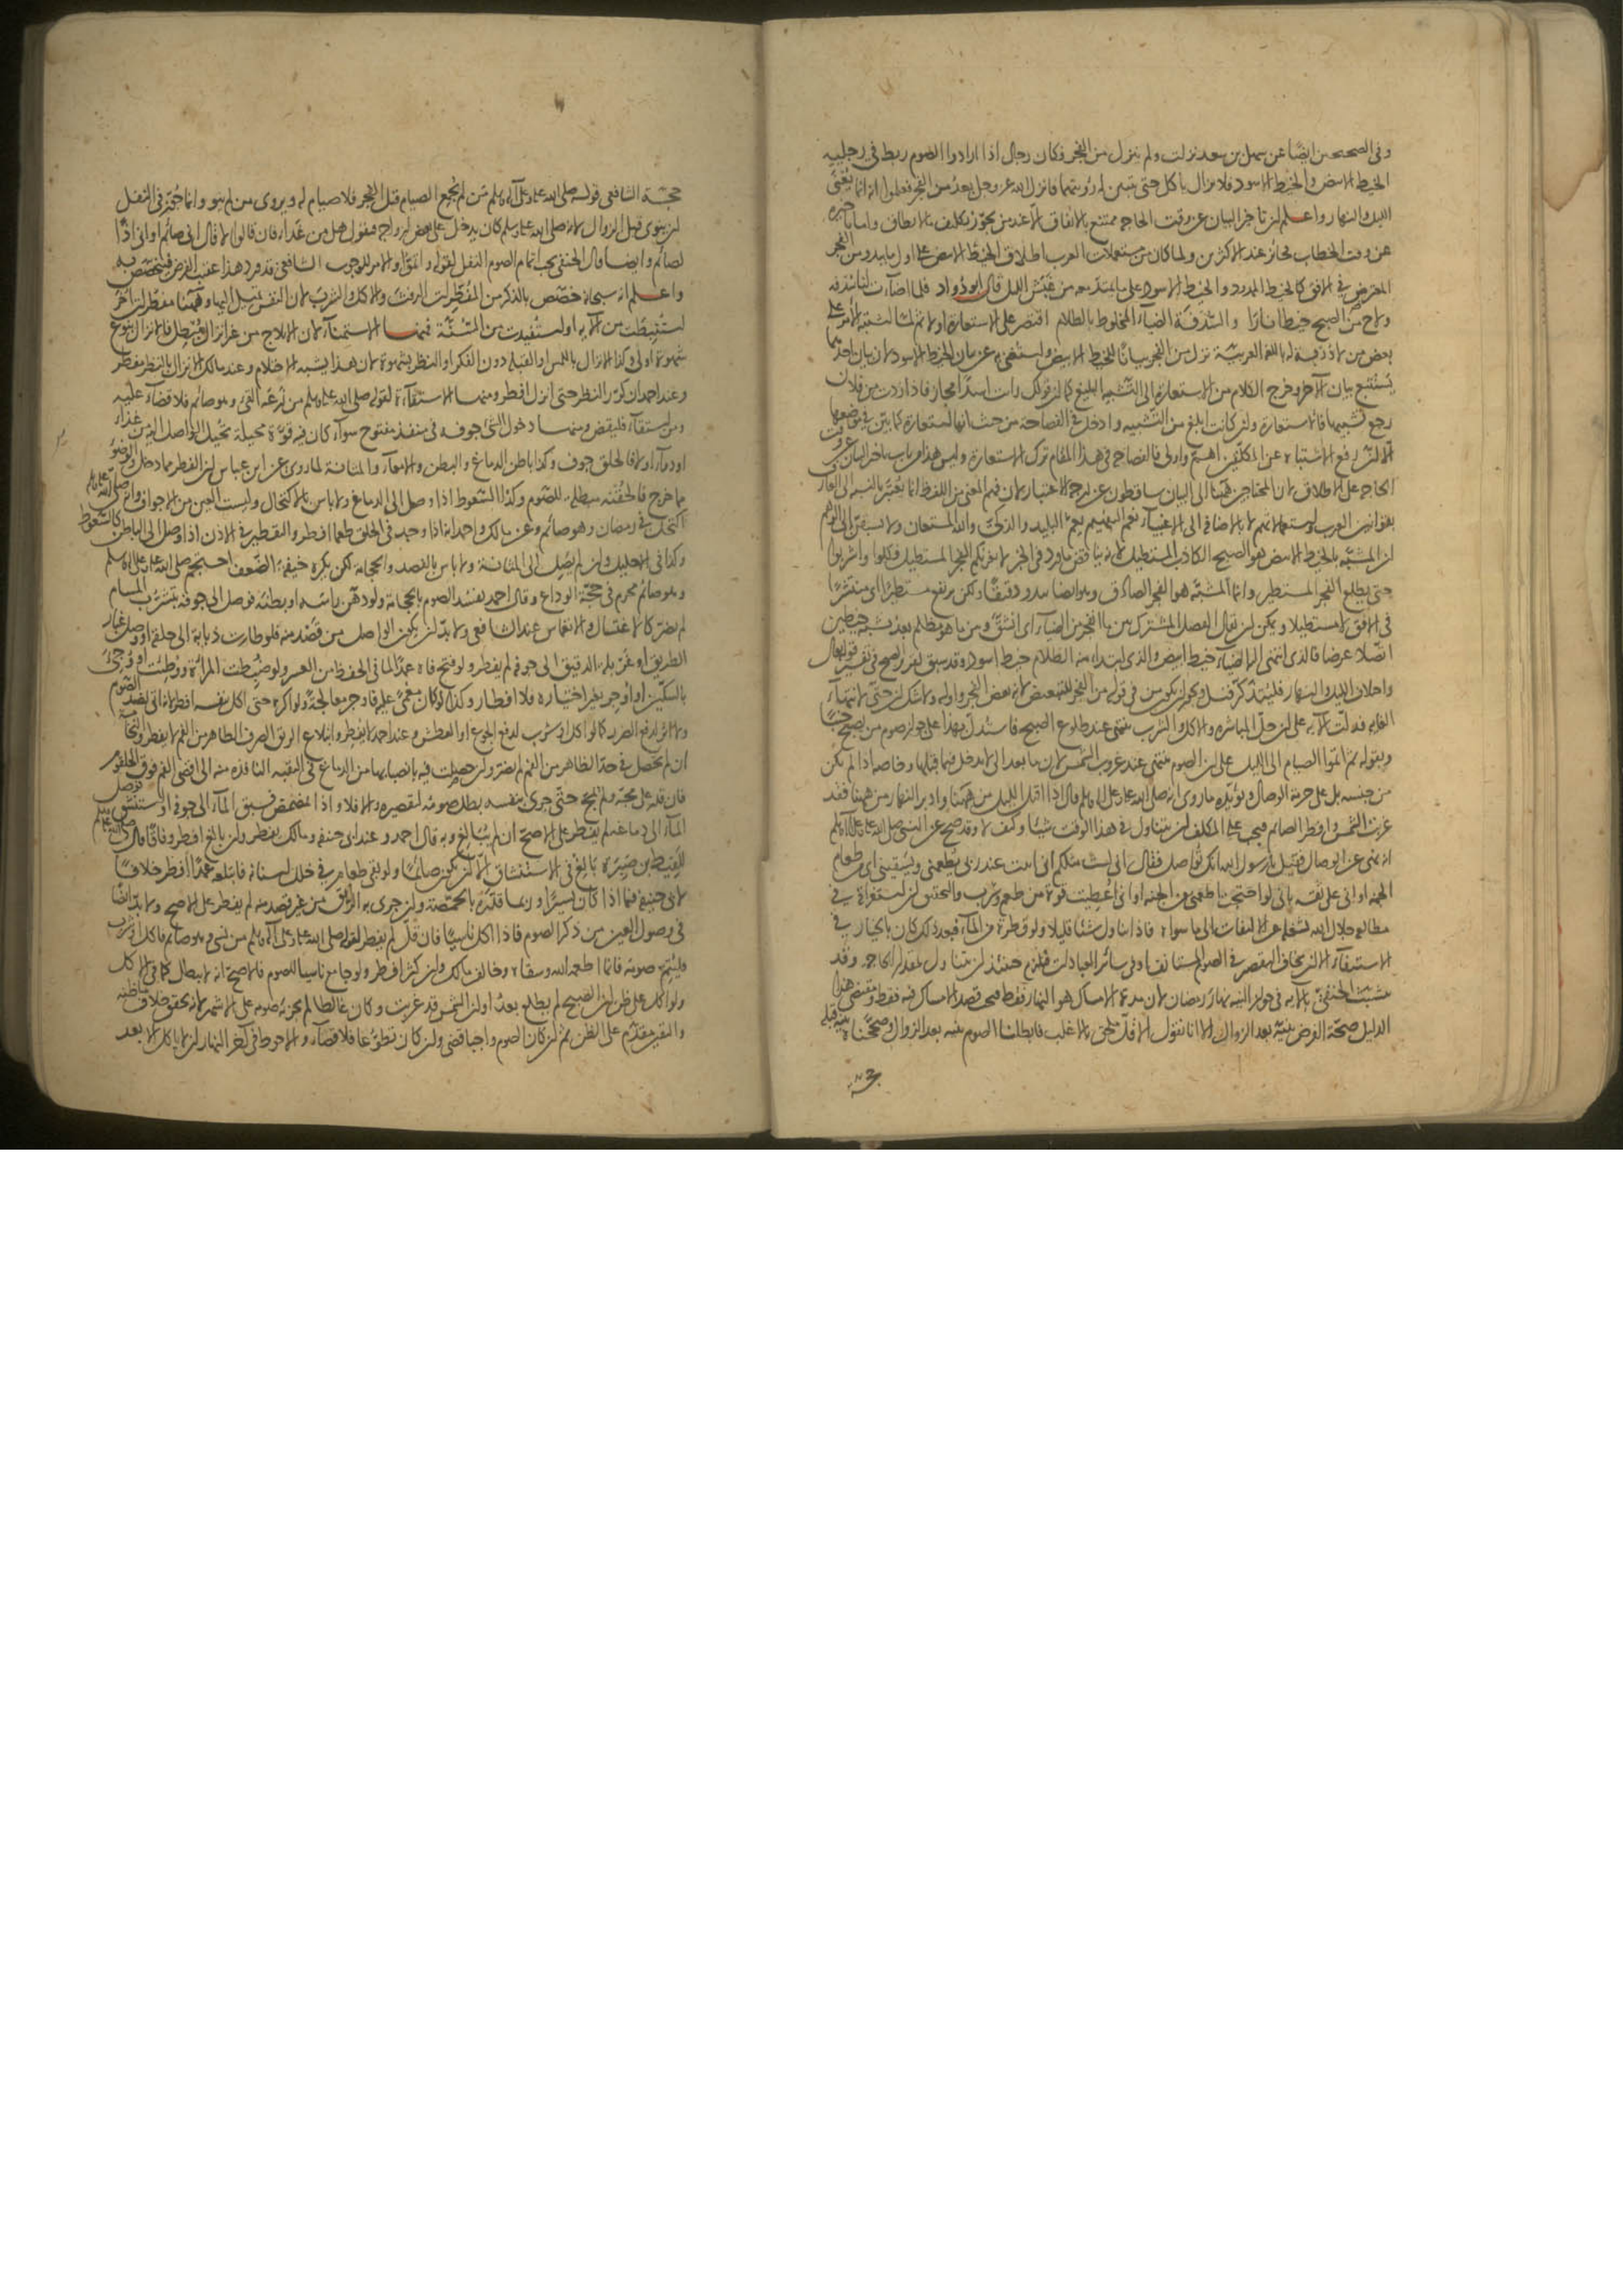 وفي الصحيحين ايضا عن سهل بن سعد نزلت ولم ينزل من الفجر فكان رجال اذا ارادوا الصوم ربط في رجليه
الخيط الابيض والخيط الاسود فلا يزال ياكل حتى يتبين له رؤيتهما فانزل الله عز وجل بعد من الفجر فعلموا انه انما يعني
الليل والنهار واعلم ان تاخير البيان عن وقت الحاجة ممتنع بالاتفاق الا عند من يجوز تكليف ما لا يطاق واما تاخيره
عن وقت الخطاب فجائز عند الاكثرين ولما كان من مستعملات العرب اطلاق الخيط الابيض على اول ما يبدو من الفجر
المعترض في الافق كالخيط الممدود والخيط الاسود على ما يمتد معه من غبش الليل قال ابو دؤاد فلما اضاءت لنا سدفة
ولاح من الصبح خيط انارا والسدفة الضياء المخلوط بالظلام اقتصر على الاستعارة اولا ثم لما اشتبه الامر على
بعض من لا دربة له باللغة العربية نزل من الفجر بيانا للخيط الابيض واستغني به عن بيان الخيط الاسود لان بيان احدهما
يستتبع بيان الآخر وخرج الكلام من الاستعارة الى التشبيه البليغ كما ان قولك رايت اسدا مجاز فاذا زدت من فلان
رجع تشبيها فالاستعارة وان كانت ابلغ من التشبيه وادخل في الفصاحة من حيث انها استعارة كما بين في موضعها
الا ان رفع الاشتباه عن المكلفين اهم واولى فالفصاحة في هذا المقام ترك الاستعارة وليس هذا من باب تاخير البيان عن وقت
الحاجة على الاطلاق لان المحتاجين ههنا الى البيان ساقطون عن درجة الاعتبار لان فهم المعنى من اللفظ انما يعتبر بالنسبة الى العارف
بقوانين العرب واستعمالاتهم لا بالاضافة الى الاغبياء نعم التفهيم يعم البليد والذكي والله المستعان ولا يسبقن الى الوهم
ان المشبه بالخيط الابيض هو الصبح الكاذب المستطيل لانه يناقض ما ورد في الخبر لا يغرنكم الفجر المستطيل فكلوا واشربوا
حتى يطلع الفجر المستطير وانما المشبه هو الفجر الصادق وهو ايضا يبدو دقيقا ولكن يرتفع مستطيرا اي منتشرا
في الافق لا مستطيلا ويمكن ان يقال الفصل المشترك بين ما انفجر من الضياء اي انشق وبين ما هو مظلم بعد يشبه خيطين
اتصلا عرضا فالذي انتهى اليه الضياء خيط ابيض والذي ابتدا منه الظلام خيط اسود وقد سبق تقرير الصبح في تفسير قوله تعالى
واختلاف الليل والنهار فليتذكر قيل ويجوز ان يكون من في قوله من الفجر للتبعيض لانه بعض الفجر واوله ولا شك ان حتى لانتهاء
الغاية فدلت الآية على ان حل المباشرة والاكل والشرب ينتهي عند طلوع الصبح فاستدل بهذا على جواز صوم من يصبح جنبا
وبقوله ثم اتموا الصيام الى الليل على ان الصوم ينتهي عند غروب الشمس لان ما بعد الى لا يدخل فيما قبلها وخاصة اذا لم يكن
من جنسه بل على حرمة الوصال ويؤيده ما روي انه صلى الله عليه وعلى آله وسلم قال اذا اقبل الليل من ههنا وادبر النهار من ههنا فقد
غربت الشمس وافطر الصائم فيجب على المكلف ان يتناول في هذا الوقت شيئا وكيف لا وقد صح عن النبي صلى الله عليه وعلى آله وسلم
انه نهى عن الوصال فقيل يا رسول الله انك تواصل فقال اني لست مثلكم اني ابيت عند ربي يطعمني ويسقيني اي من طعام
الجنة او اني على ثقة باني لو احتجت اطعمني من الجنة او اني اعطيت قوة من طعم وشرب
مطالعة جلال الله يشغله عن الالتفات الى ما سواه فاذا تناول شيئا قليلا ولو قطرة من الماء فبعد ذلك كان بالخيار في
الاستيفاء الا ان يخاف التقصير في الصوم المستانف او في سائر العبادات فيلزم حينئذ ان يتناول مقدار الحاجة وقد
تشبث الحنفي بالآية في جواز النية نهار رمضان لان مدة الامساك هو النهار فقط فيجب قصد الامساك فيه فقط ومقتضى هذا
الدليل صحة الفرض بنية بعد الزوال الا انا نقول الاقل ملحق بالاغلب فابطلنا الصوم بنية بعد الزوال وصححناه بنية قبله
حجة الشافعي قوله صلى الله عليه وعلى آله وسلم من لم يجمع الصيام قبل الفجر فلا صيام له ويروى من لم ينو وانما جوز في النفل
ان ينوي قبل الزوال لانه صلى الله عليه وسلم كان يدخل على بعض ازواجه فيقول هل من غداء فان قالوا لا قال اني صائم او اني اذا
لصائم وايضا قال الحنفي يجب اتمام الصوم النفل لقوله واتموا والامر للوجوب الشافعي قد ورد هذا عقيب الفرض فيختص به
واعلم انه سبحانه خصص بالذكر من المفطرات الرفث والاكل والشرب لان النفس تميل اليها وههنا مفطرات اخر
استنبطت من الآية او استفيدت من السنة فمنها الاستمناء لان الايلاج من غير انزال مبطل فالانزال بنوع
شهوة اولى وكذا الانزال باللمس او القبلة دون الفكر او النظر بشهوة لان هذا يشبه الاحتلام وعند مالك الانزال بالنظر مفطر
وعند احمد ان كرر النظر حتى انزل افطر ومنها الاستقاءة لقوله صلى الله عليه وسلم من ذرعه القيء وهو صائم فلا قضاء عليه
ومن استقاء فليقض ومنها دخول الشيء جوفه في منفذ مفتوح سواء كان فيه قوة محيلة تحيل الواصل اليه من غذاء
او دواء اولا فالحلق جوف وكذا باطن الدماغ والبطن والامعاء والمثانة لما روي عن ابن عباس ان الفطر مما دخل والوضوء
مما خرج فالحقنة مبطلة للصوم وكذا السعوط اذا وصل الى الدماغ ولا باس بالاكتحال وليست العين من الاجواف وانه صلى الله عليه وسلم
اكتحل في رمضان وهو صائم وعن مالك واحمد انه اذا وجد في الحلق طعما افطر والتقطير في الاذن اذا وصل الى الباطن كالسعوط
وكذا في الاحليل وان لم يصل الى المثانة ولا باس بالفصد والحجامة لكن يكره خيفة الضعف احتجم صلى الله عليه وعلى آله وسلم
وهو صائم محرم في حجة الوداع وقال احمد يفسد الصوم بالحجامة ولو دهن راسه او بطنه فوصل الى جوفه بتشرب المسام
لم يضر كالاغتسال والانغماس عند الشافعي ولا بد ان يكون الواصل من قصد منه فلو طارت ذبابة الى حلقه او وصل غبار
الطريق او غربلة الدقيق الى جوفه لم يفطر ولو فتح فاه عمدا لما في الحفظ من العسر ولو ضبطت المراة ووطئت او وجئ
بالسكين او اوجر بغير اختياره فلا افطار وكذا لو كان مغمى عليه فاوجر معالجة ولو اكره حتى اكل بنفسه افطر لانه اتى بضد الصوم
ولا اثر لدفع الضرر كما لو اكل او شرب لدفع الجوع او العطش وعند احمد لا يفطر وابتلاع الريق الصرف الطاهر من الفم لا يفطر والنخامة
ان لم تحصل في حد الظاهر من الفم لم تضر وان حصلت فيه بانصبابها من الدماغ في الثقبة النافذة منه الى اقصى الفم فوق الحلقوم
فان قدر على مجه ولم يمج حتى جرى بنفسه بطل صومه لتقصيره والا فلا واذا تمضمض فسبق الماء الى جوفه او استنشق فوصل
الماء الى دماغه لم يفطر على الاصح ان لم يبالغ وبه قال احمد وعند ابي حنيفة ومالك يفطر وان بالغ افطر وفاقا قال صلى الله عليه وسلم
للقيط بن صبرة بالغ في الاستنشاق الا ان تكون صائما ولو بقي طعام في خلل اسنانه فابتلعه عمدا افطر خلافا
لابي حنيفة فيما اذا كان يسيرا وربما قدره بالحمصة وان جرى به الريق من غير قصد منه لم يفطر على الاصح ولا بد ايضا
في وصول العين من ذكر الصوم فاذا اكل ناسيا فان قل لم يفطر لقوله صلى الله عليه وعلى آله وسلم من نسي وهو صائم فاكل او شرب
فليتم صومه فانما اطعمه الله وسقاه وخالف مالك وان كثر افطر ولو جامع ناسيا للصوم فالاصح انه لا يبطل كما في الاكل
ولو اكل على ظن ان الصبح لم يطلع بعد او ان الشمس قد غربت وكان غالطا لم يجزئه صومه على الاشهر لانه تحقق خلاف ما ظنه
واليقين مقدم على الظن ثم ان كان الصوم واجبا قضى وان كان تطوعا فلا قضاء والاحوط في آخر النهار ان لا ياكل الا بعد